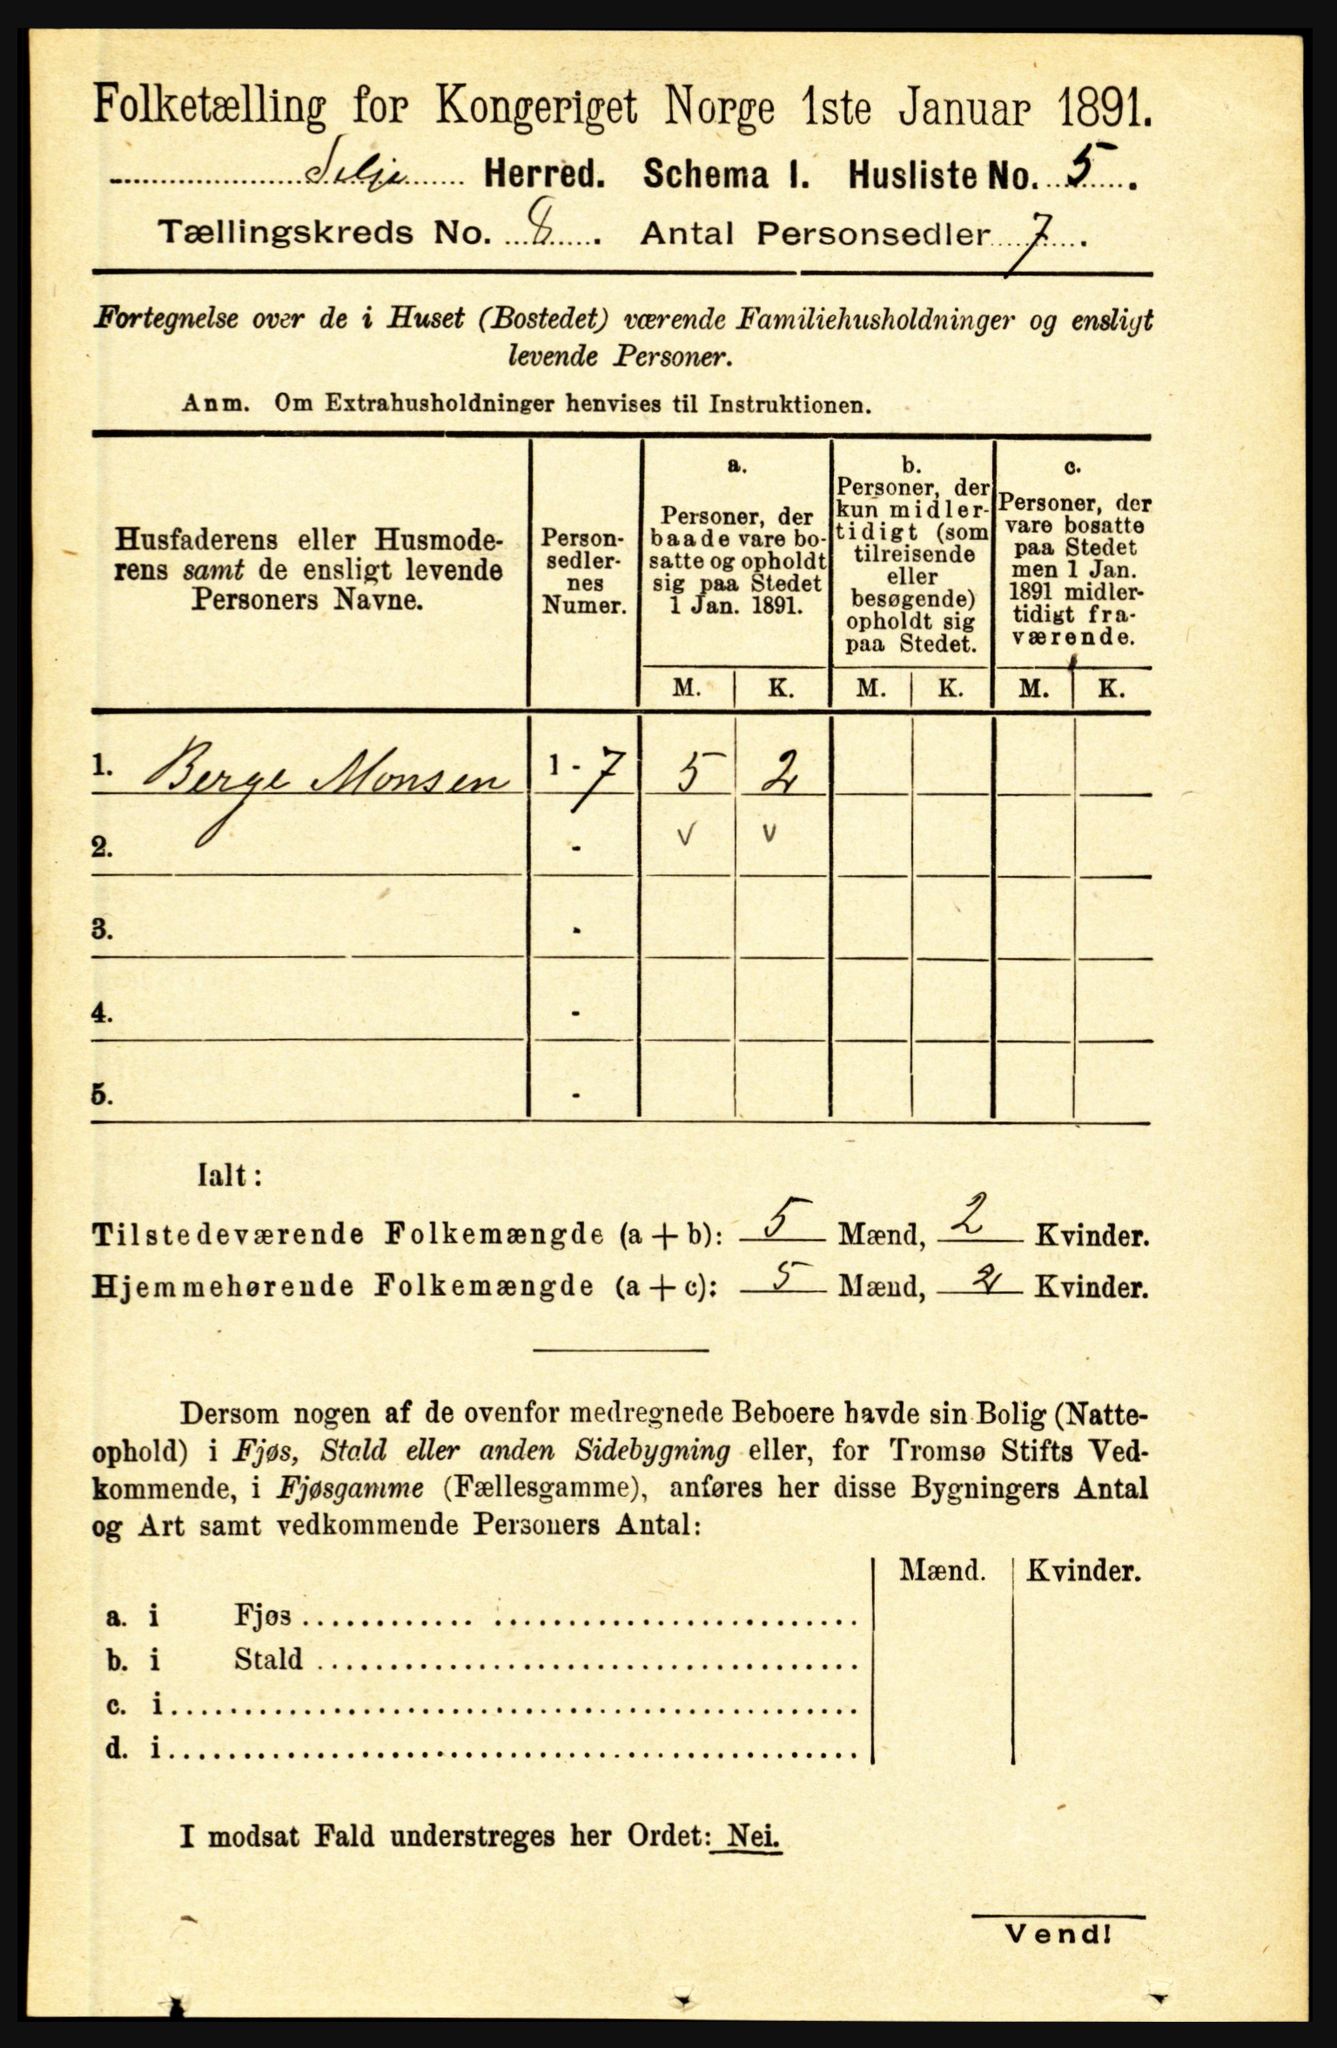 Folketælling for Kongeriget Norge 1ste Januar 1891.
Selje Herred. Schema I. Husliste No. 5.
Tællingskreds No. 8. Antal Personsedler 7.
Fortegnelse over de i Huset (Bostedet) værende Familiehusholdninger og ensligt
levende Personer.
Anm. Om Extrahusholdninger henvises til Instruktionen.
Husfaderens eller Husmode-
rens samt de ensligt levende
Personers Navne.
Person-
sedler-
nes
Numer.
a.
Personer, der
baade vare bo-
satte og opholdt
sig paa Stedet
1 Jan. 1891.
b.
Personer, der
kun midler-
tidigt (som
tilreisende
eller
besøgende)
opholdt sig
paa Stedet.
c.
Personer, der
vare bosatte
paa Stedet
men 1 Jan.
1891 midler-
tidigt fra-
værende.
M. K. M. K. M. K.
1. Berge Monsen 1 - 7 5 2
2. - v v
3. -
4. -
5. -
Ialt:
Tilstedeværende Folkemængde (a + b): 5 Mænd, 2 Kvinder.
Hjemmehørende Folkemængde (a + c): 5 Mænd, 2 Kvinder.
Dersom nogen af de ovenfor medregnede Beboere havde sin Bolig (Natte-
ophold) i Fjøs, Stald eller anden Sidebygning eller, for Tromsø Stifts Ved-
kommende, i Fjøsgamme (Fællesgamme), anføres her disse Bygningers Antal
og Art samt vedkommende Personers Antal:
Mænd. Kvinder.
a. i Fjøs
b. i Stald
c. i
d. i
I modsat Fald understreges her Ordet: Nei.
Vend!